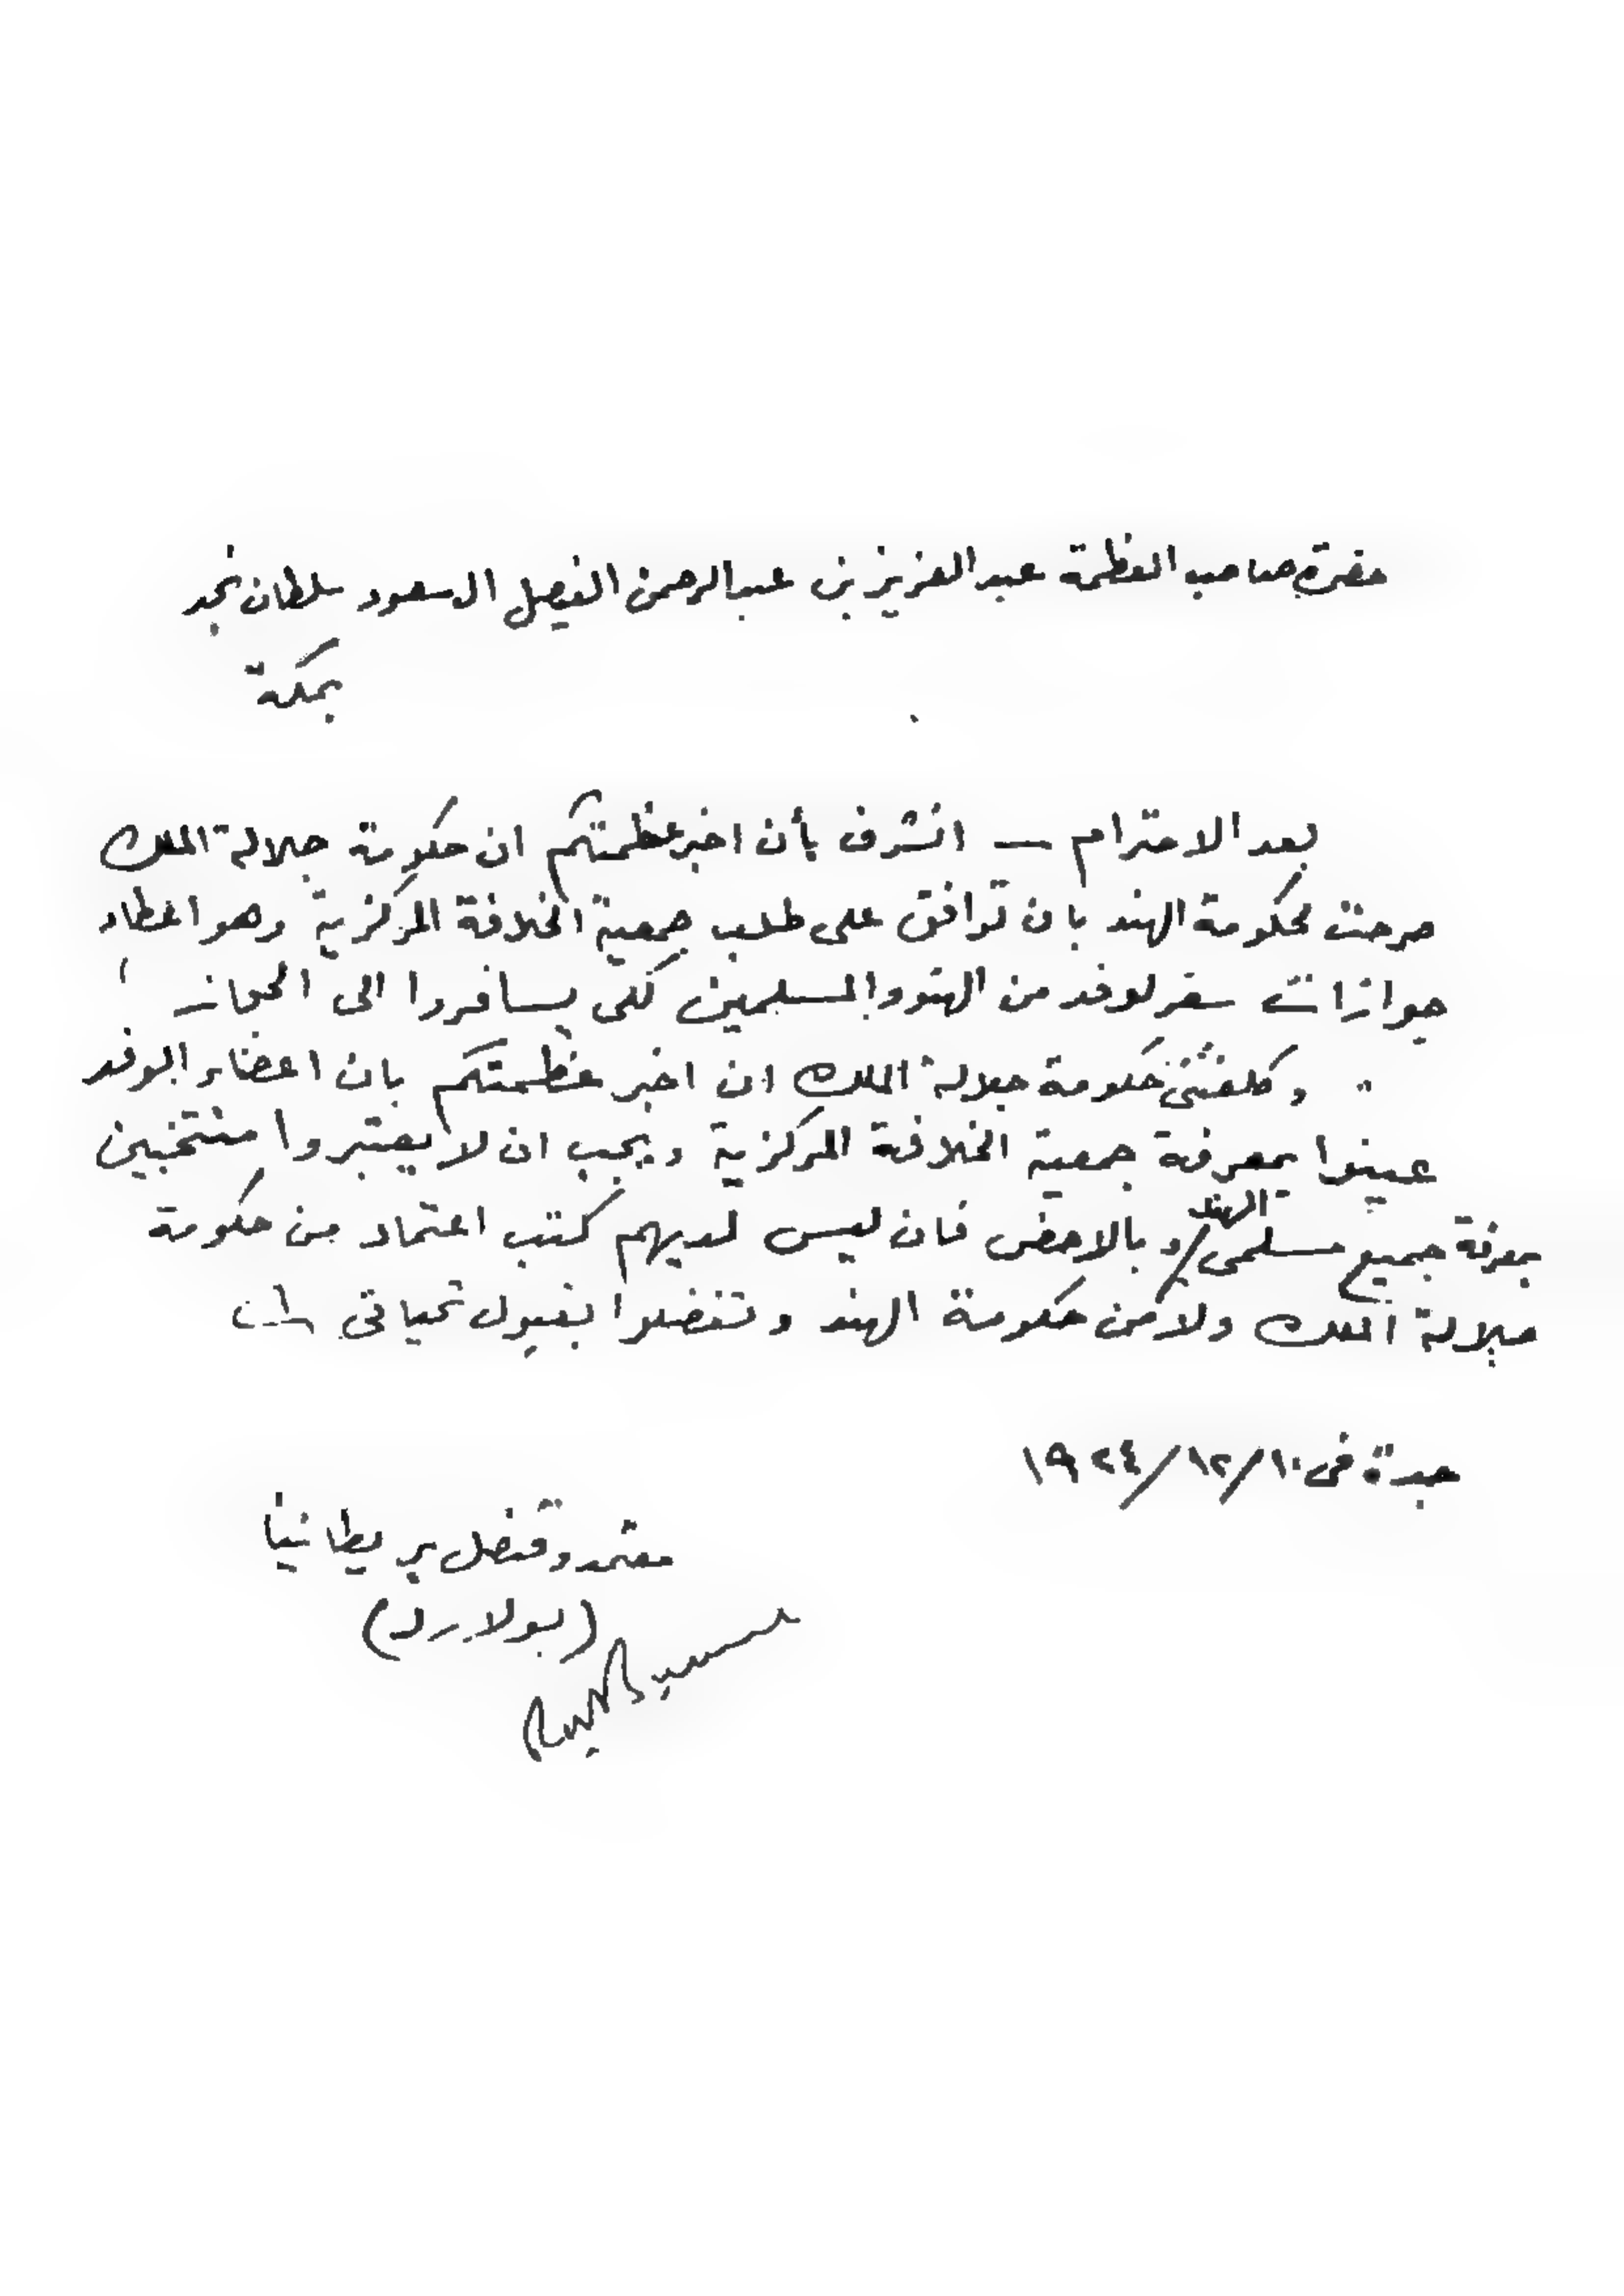 حضرة صاحب العظمة عبد العزيز بن عبد الرحمن الفيصل ال سعود سلطان نجد
بمكة
بعد الاحترام — اتشرف بأن اخبر عظمتكم ان حكومة جلالة الملك
صرحت لحكومة الهند بان توافق على طلب جمعية الخلافة المركزية وهو اعطاء
جوازات سفر لوفد من الهنود المسلمين لكى يسافروا الى الحجاز
وكلفتنى حكومة جلالة الملك ان اخبر عظمتكم بان اعضاء الوفد
عينوا بمعرفة جمعية الخلافة المركزية ويجب ان لا يعتبروا منتخبين
بمعرفة جميع مسلمى الهند و بالاخص فان ليس لديهم كتب اعتماد من حكومة
جلالة الملك ولا من حكومة الهند وتفضلوا بقبول تحياتى
جدة فى ١٠/١٢/١٩٢٤
معتمد وقنصل بريطانيا
(بولارد)